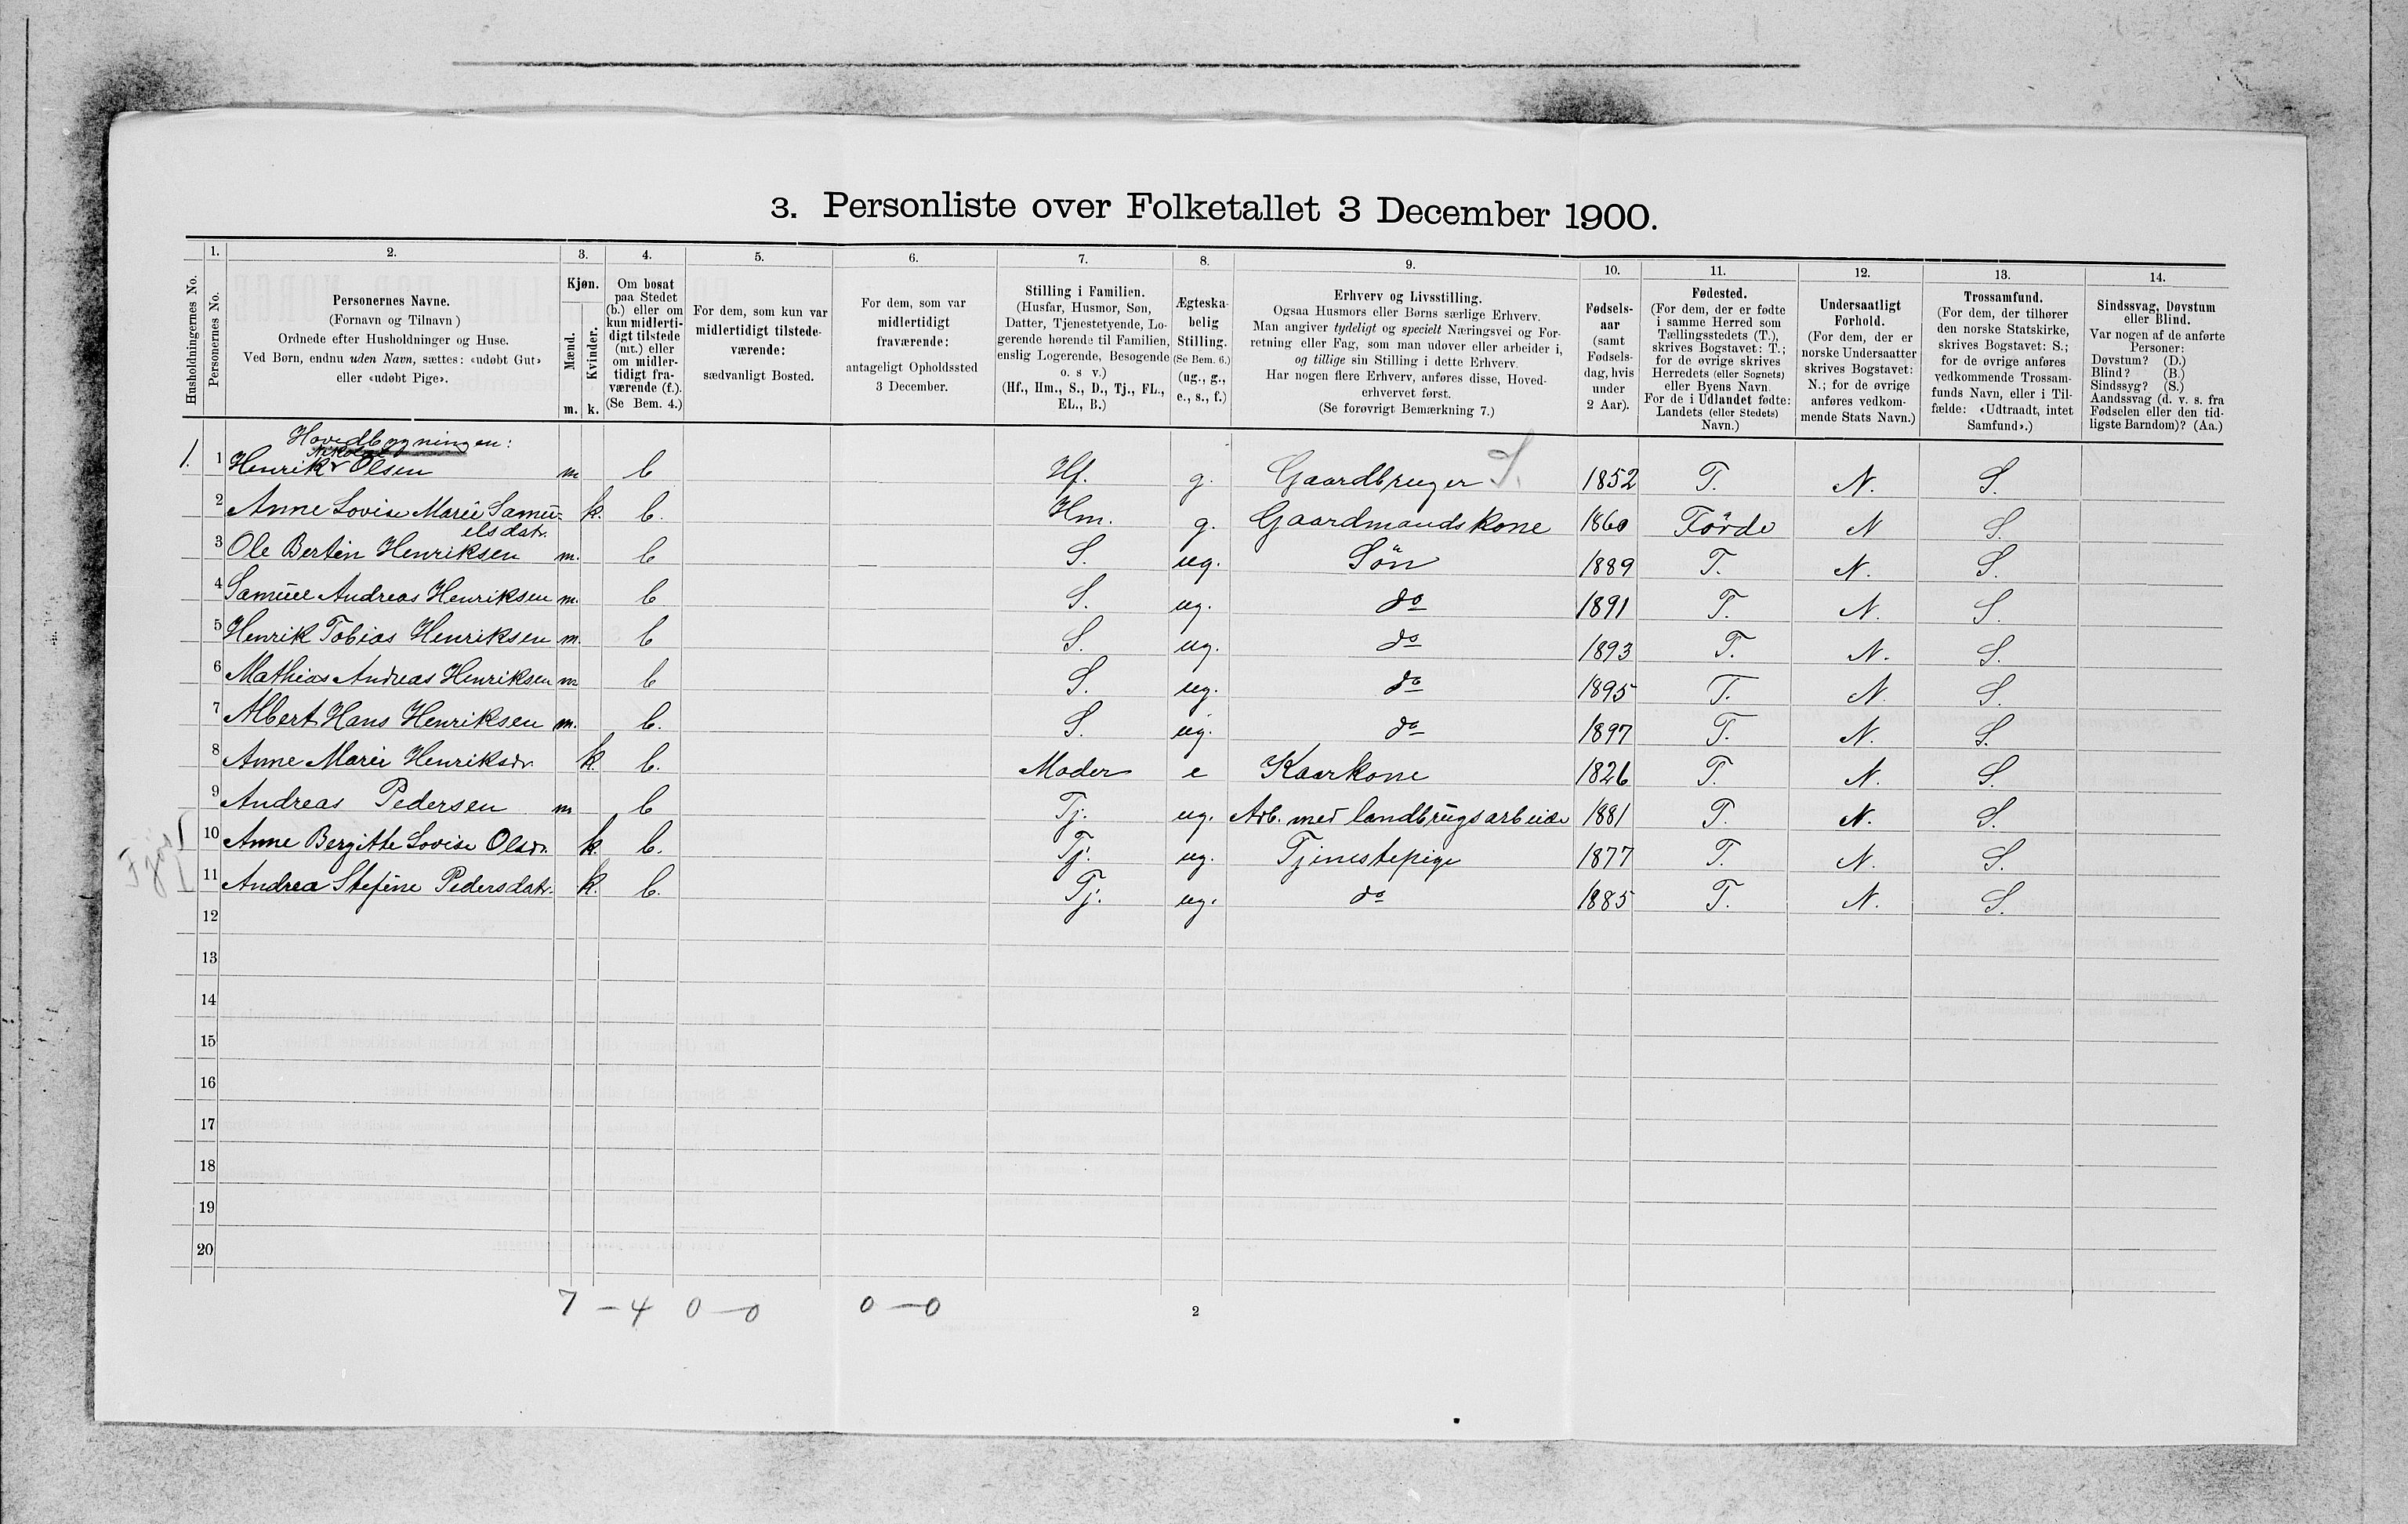 3. Personliste over Folketallet 3 December 1900.
Husholdningernes No.
1.
Personernes No.
2.
Personernes Navne.
(Fornavn og Tilnavn)
Ordnede efter Husholdninger og Huse.
Ved Børn, endnu uden Navn, sættes: «udøbt Gut»
eller «udøbt Pige».
3.
Kjøn.
Mænd.
Kvinder.
m. k.
4.
Om bosat
paa Stedet
(b.) eller om
kun midlerti-
digt tilstede
(mt.) eller
om midler-
tidigt fra-
værende (f.).
(Se Bem. 4.)
5.
For dem, som kun var
midlertidigt tilstede-
værende:
sædvanligt Bosted.
6.
For dem, som var
midlertidigt
fraværende:
antageligt Opholdssted
3 December.
7.
Stilling i Familien.
(Husfar, Husmor, Søn,
Datter, Tjenestetyende, Lo-
gerende hørende til Familien,
enslig Logerende, Besøgende
o. s v.)
(Hf., Hm., S., D., Tj., FL.,
EL., B.)
8.
Ægteska-
belig
Stilling.
(Se Bem. 6.)
(ug., g.,
e., s., f.)
9.
Erhverv og Livsstilling.
Ogsaa Husmors eller Børns særlige Erhverv.
Man angiver tydeligt og specielt Næringsvei og For-
retning eller Fag, som man udøver eller arbeider i,
og tillige sin Stilling i dette Erhverv.
Har nogen flere Erhverv, anføres disse, Hoved-
erhvervet først.
(Se forøvrigt Bemærkning 7.)
10.
Fødsels-
aar
(samt
Fødsels-
dag, hvis
under
2 Aar).
11.
Fødested.
(For dem, der er fødte
i samme Herred som
Tællingsstedets (T.),
skrives Bogstavet: T.;
for de øvrige skrives
Herredets (eller Sognets)
eller Byens Navn.
For de i Udlandet fødte:
Landets (eller Stedets)
Navn.)
12.
Undersaatligt
Forhold.
(For dem, der er
norske Undersaatter
skrives Bogstavet:
N.; for de øvrige
anføres vedkom-
mende Stats Navn.)
13.
Trossamfund.
(For dem, der tilhører
den norske Statskirke,
skrives Bogstavet: S.;
for de øvrige anføres
vedkommende Trossam-
funds Navn, eller i Til-
fælde: «Udtraadt, intet
Samfund».)
14.
Sindssvag, Døvstum
eller Blind.
Var nogen af de anførte
Personer:
Døvstum? (D.)
Blind? (B.)
Sindssyg? (S.)
Aandssvag (d. v. s. fra
Fødselen eller den tid-
ligste Barndom)? (Aa.)
Hovedbygningen:
Nikolai
1. 1 Henrik v Olsen m b Hf. g. Gaardbruger S. 1852 T. N. S.
2 Anne Lovise Marie Samu- k. b. Hm. g. Gaardmandskone 1860 Förde N S.
elsdatr.
3 Ole Bertin Henriksen m. b S. ug. Sön 1889 T. N. S.
4 Samuel Andreas Henriksen m. b S. ug. do 1891 T. N. S.
5 Henrik Tobias Henriksen m. b S. ug. do 1893 T. N. S.
6 Mathias Andreas Henriksen m b S. ug. do 1895 T. N. S.
7 Albert Hans Henriksen m. b. S. ug. do 1897 T. N. S.
8 Anne Marie Henriksdr. k. b. Moder e Kaarkone 1826 T. N. S.
9 Andreas Pedersen m b Tj. ug. Arb. med landbrugsarbeide 1881 T. N. S.
Fjøs
10 Anne Bergitte Lovise Olsdr. k. b. Tj. ug. Tjenestepige 1877 T. N. S.
11 Andrea Stefine Pedersdatr. k. b. Tj. ug. do 1885 T. N. S.
12
13
14
15
16
17
18
19
20
7 – 4 0 – 0 0 – 0
2